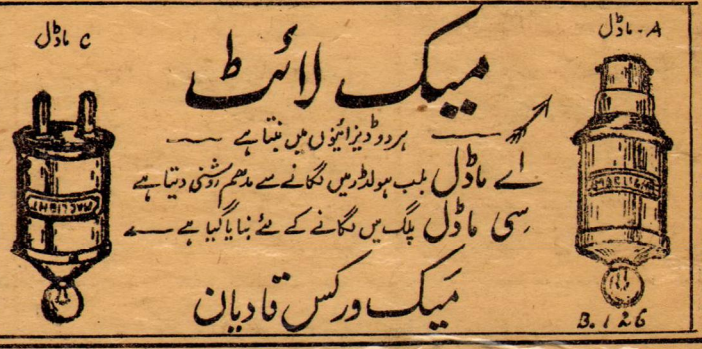 A - ماڈل
C ماڈل
میک لائٹ
ہر دو ڈیزائینوں میں بنتا ہے
اے ماڈل بلب ہولڈر میں لگانے سے مدھم روشنی دیتا ہے
سی ماڈل پلگ میں لگانے کے لئے بنایا گیا ہے
میک ورکس قادیان
MACLIGHT
MACLIGHT
B. 126